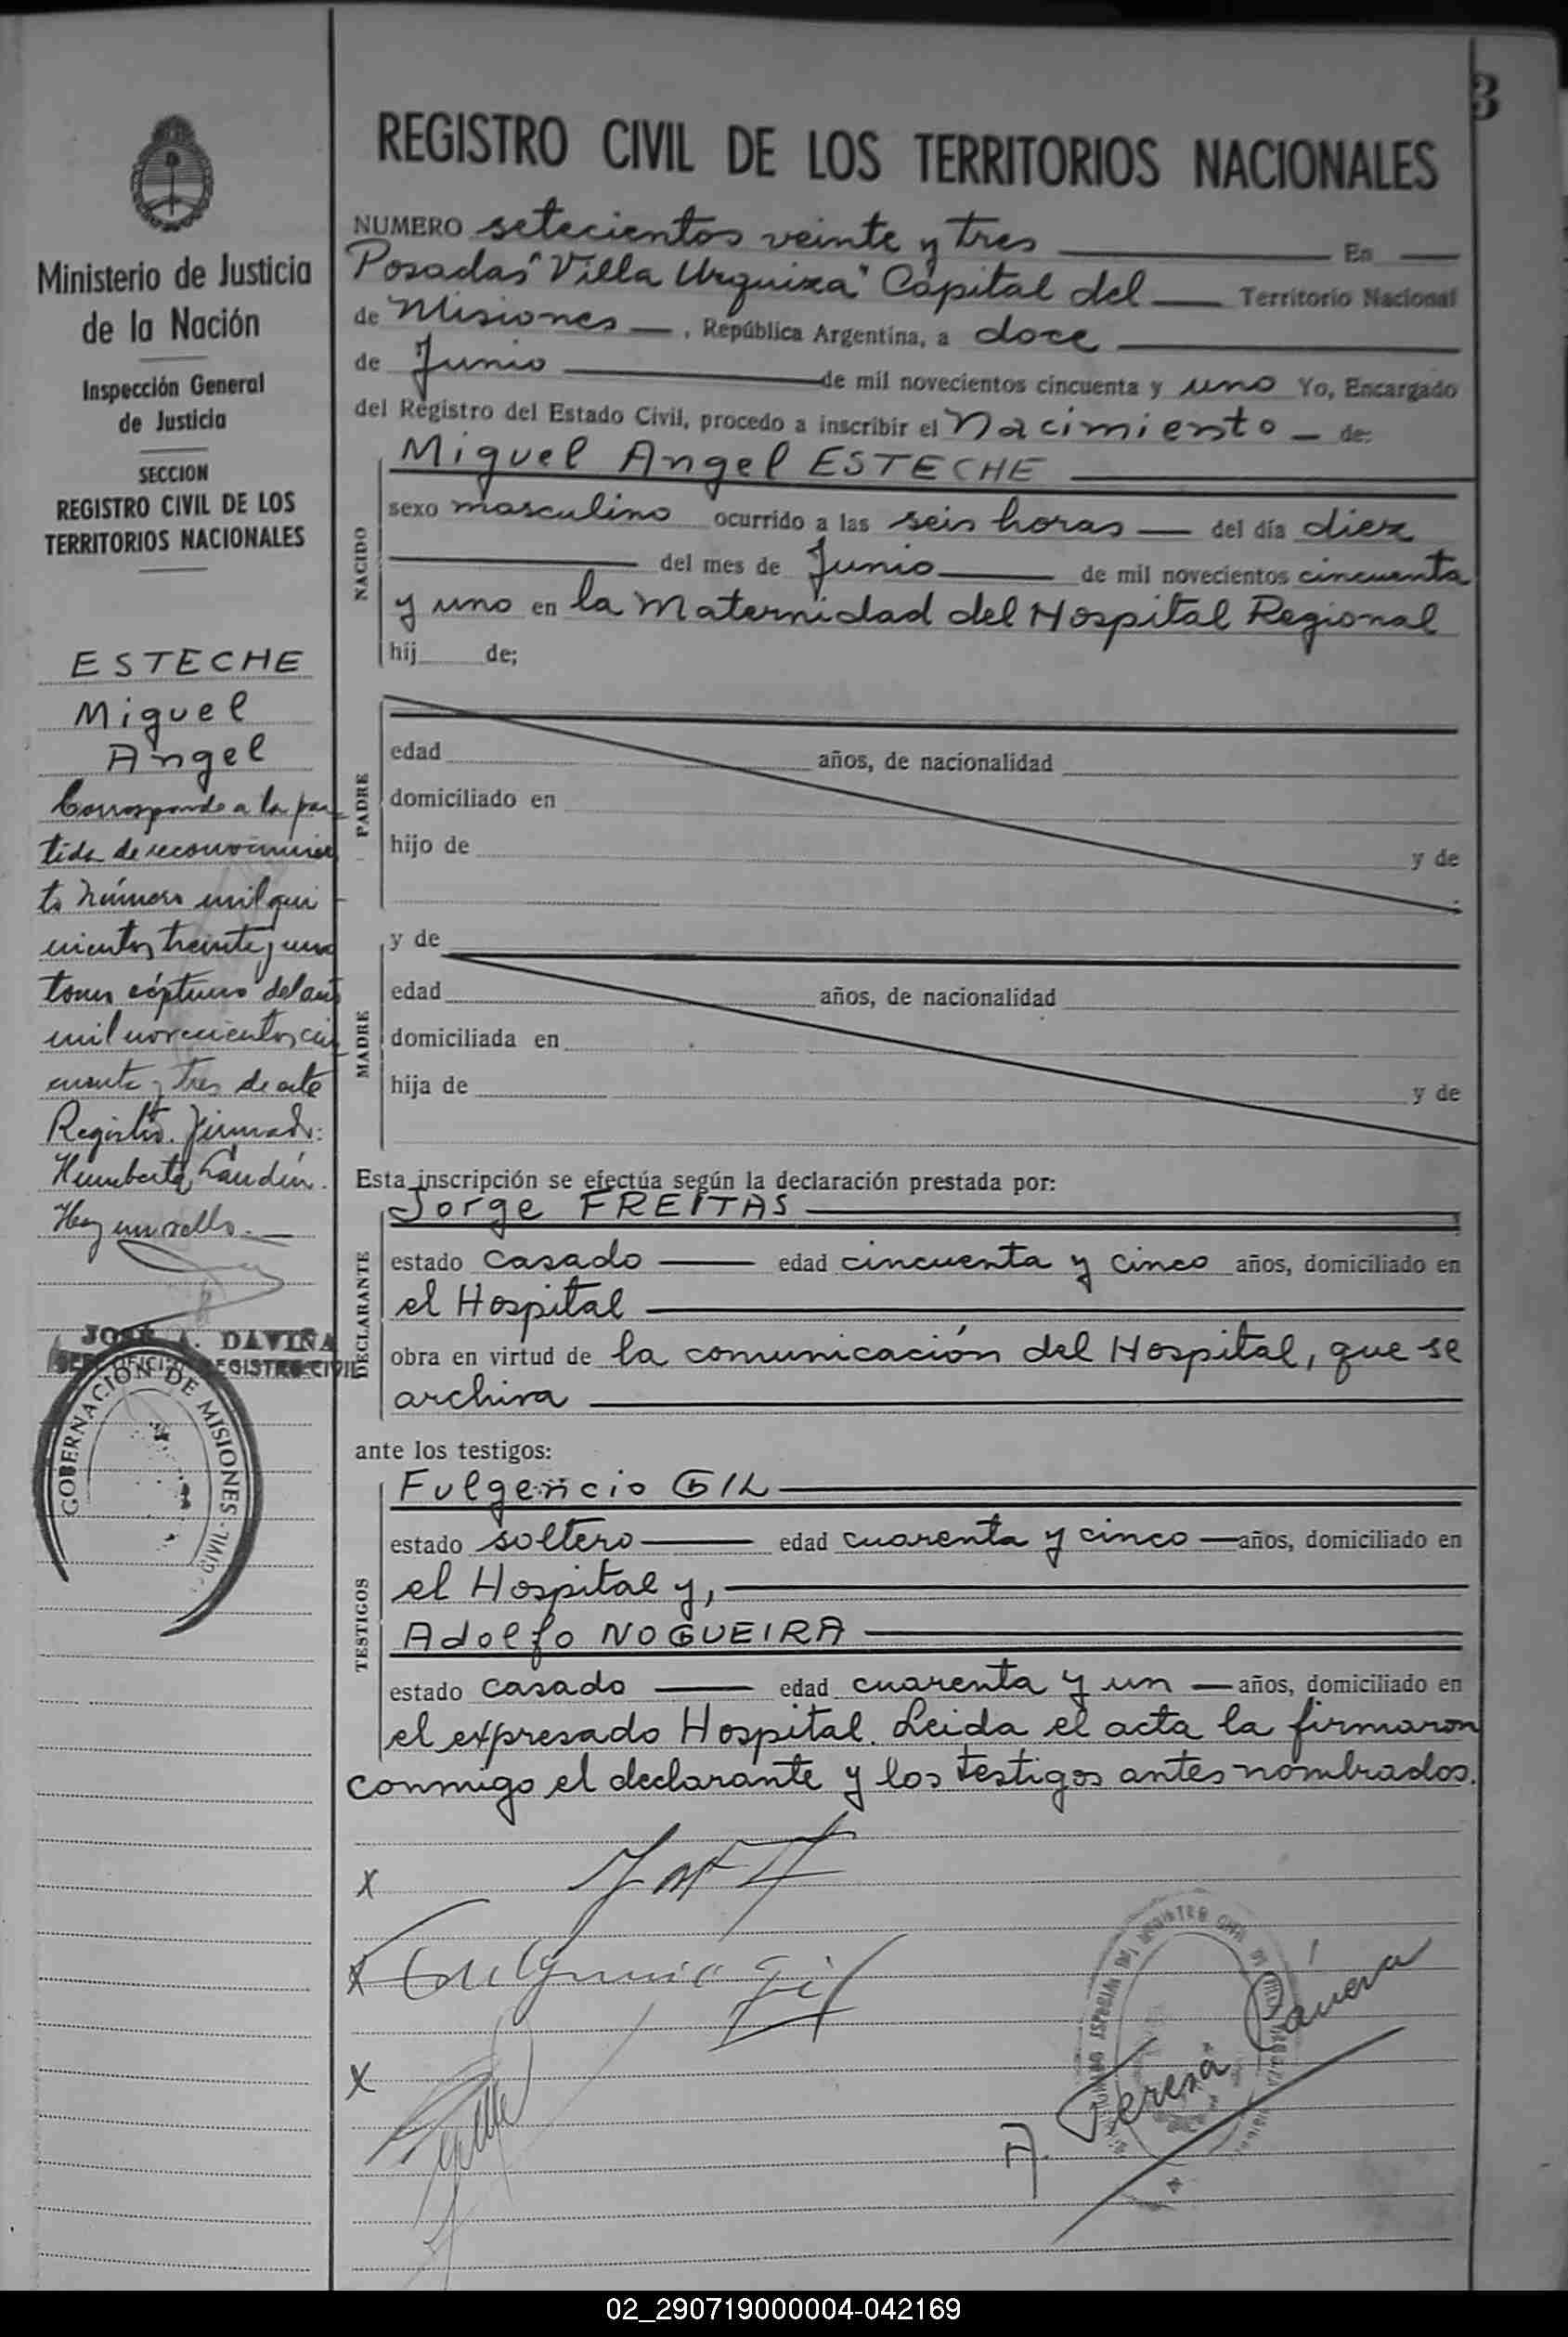 3
REGISTRO CIVIL DE LOS TERRITORIOS NACIONALES
Ministerio de Justicia
de la Nación
Inspección General
de Justicia
SECCION
REGISTRO CIVIL DE LOS
TERRITORIOS NACIONALES
ESTECHE
Miguel
Angel
Corresponde a la par
tida de reconocimien
to número mil qui
nientos treinta y uno
tomo séptimo del año
mil novecientos cin
cuenta y tres de este
Registro. Firmado:
Humberto Landin.
Hay un sello.
JOSÉ A. DAVIÑA
OFICI REGISTRO CIVIL
GOBERNACION DE MISIONES
NUMERO setecientos veinte y tres En
Posadas "Villa Urquiza" Capital del Territorio Nacional
de Misiones, República Argentina, a doce
de Junio de mil novecientos cincuenta y uno Yo, Encargado
del Registro del Estado Civil, procedo a inscribir el Nacimiento de:
Miguel Angel ESTECHE
NACIDO
sexo masculino ocurrido a las seis horas del día diez
del mes de Junio de mil novecientos cincuenta
y uno en la Maternidad del Hospital Regional
hij de;
PADRE
edad años, de nacionalidad
domiciliado en
hijo de y de
MADRE
y de
edad años, de nacionalidad
domiciliada en
hija de y de
Esta inscripción se efectúa según la declaración prestada por:
DECLARANTE
Jorge FREITAS
estado casado edad cincuenta y cinco años, domiciliado en
el Hospital
obra en virtud de la comunicación del Hospital, que se
archiva
ante los testigos:
TESTIGOS
Fulgencio GIL
estado soltero edad cuarenta y cinco años, domiciliado en
el Hospital y,
Adolfo NOGUEIRA
estado casado edad cuarenta y un años, domiciliado en
el expresado Hospital. Leida el acta la firmaron
conmigo el declarante y los testigos antes nombrados.
x
x Fulgencio Gil
x
A. Teresa Rivera
02_290719000004-042169